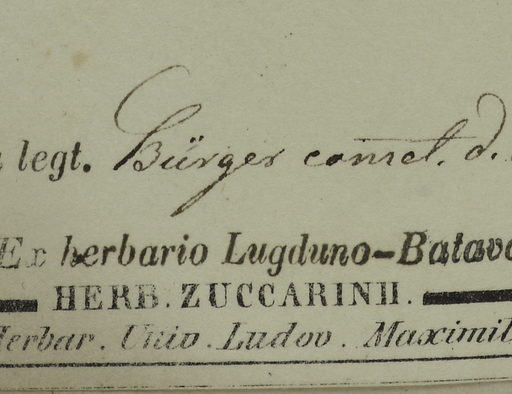 legt. Bürger com̄ct. d.
Ex herbario Lugduno-Batavo
HERB. ZUCCARINII.
Herbar. Univ. Ludov. Maximil